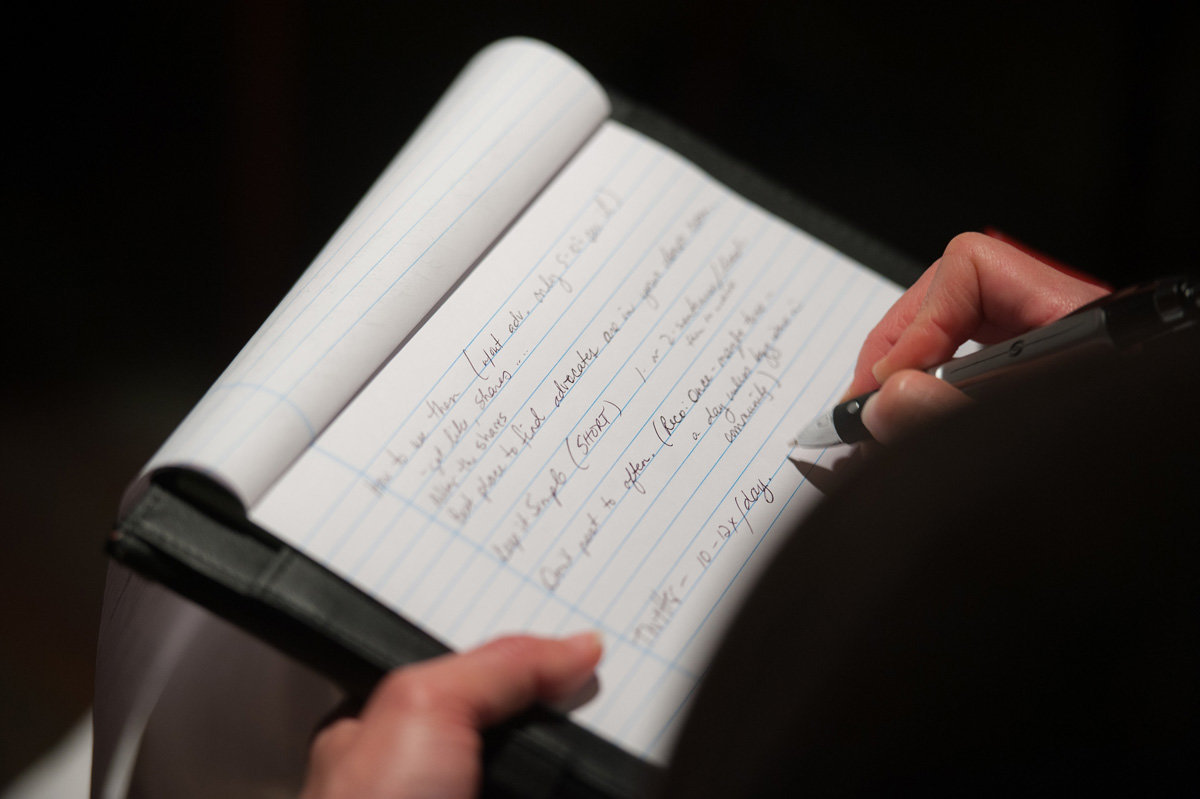 How to use them (want adv. only 5-10 sec
- get like, shares ....
Allow the shares
Best place to find advocates are in your
Keep it Simple (SHORT) 1 or 2 sentences
Don't post to often. (Reco: Once - maybe twice -
a day unless big news in
community)
Twitter - 10-12x/day.